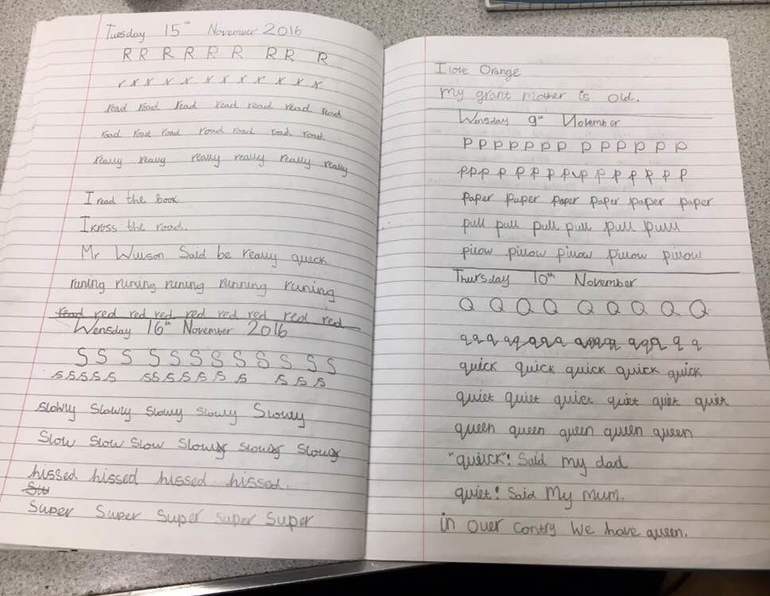 Tuesday 15th November 2016
R R R R R R R R R
r r r r r r r r r r r
road road road road road road road
road road road road road road road
really really really really really really
I read the book
I kross the road.
Mr Wulson Said be really quick
runing runing runing running runing
read red red red red red red red red
Wensday 16th November 2016
S S S S S S S S S S S S
s s s s s s s s s s s s s s
Slowly Slowly Slowly Slowly Slowly
Slow Slow Slow Slow Slow Slow
hissed hissed hissed hissed.
Super Super Super Super Super
I love Orange
My grant mother is old.
Wensday 9th November
P P P P P P P P P P P P P
p p p p p p p p p p p p p p
paper puper paper paper paper paper
pull pull pull pull pull pull
pilow pillow pillow pillow pillow
Thursday 10th November
Q Q Q Q Q Q Q Q Q
q q q q q q q q q q q q q q q q q
quick quick quick quick quick
quiet quiet quiet quiet quiet quiet
queen queen queen queen queen
"quick"! Said my dad
quiet! Said My Mum.
in ouer contry We have queen.